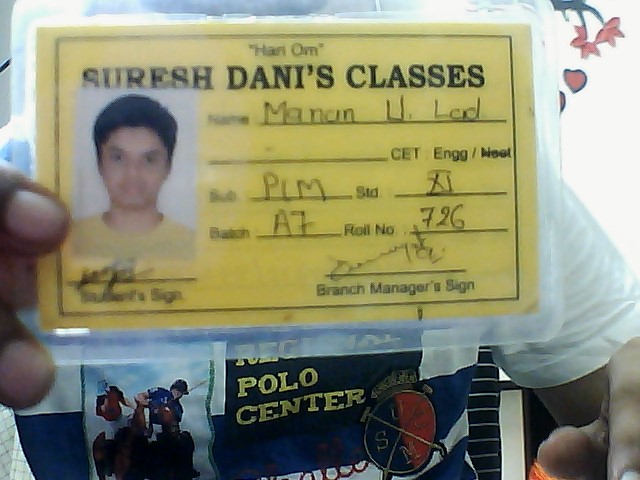 "Hari Om"
SURESH DANI'S CLASSES
Name Manan U. Lad
CET : Engg / Neet
Sub. P/M Std. XI
Batch A7 Roll No. 726
Student's Sign Branch Manager's Sign
REGIONAL
POLO
CENTER